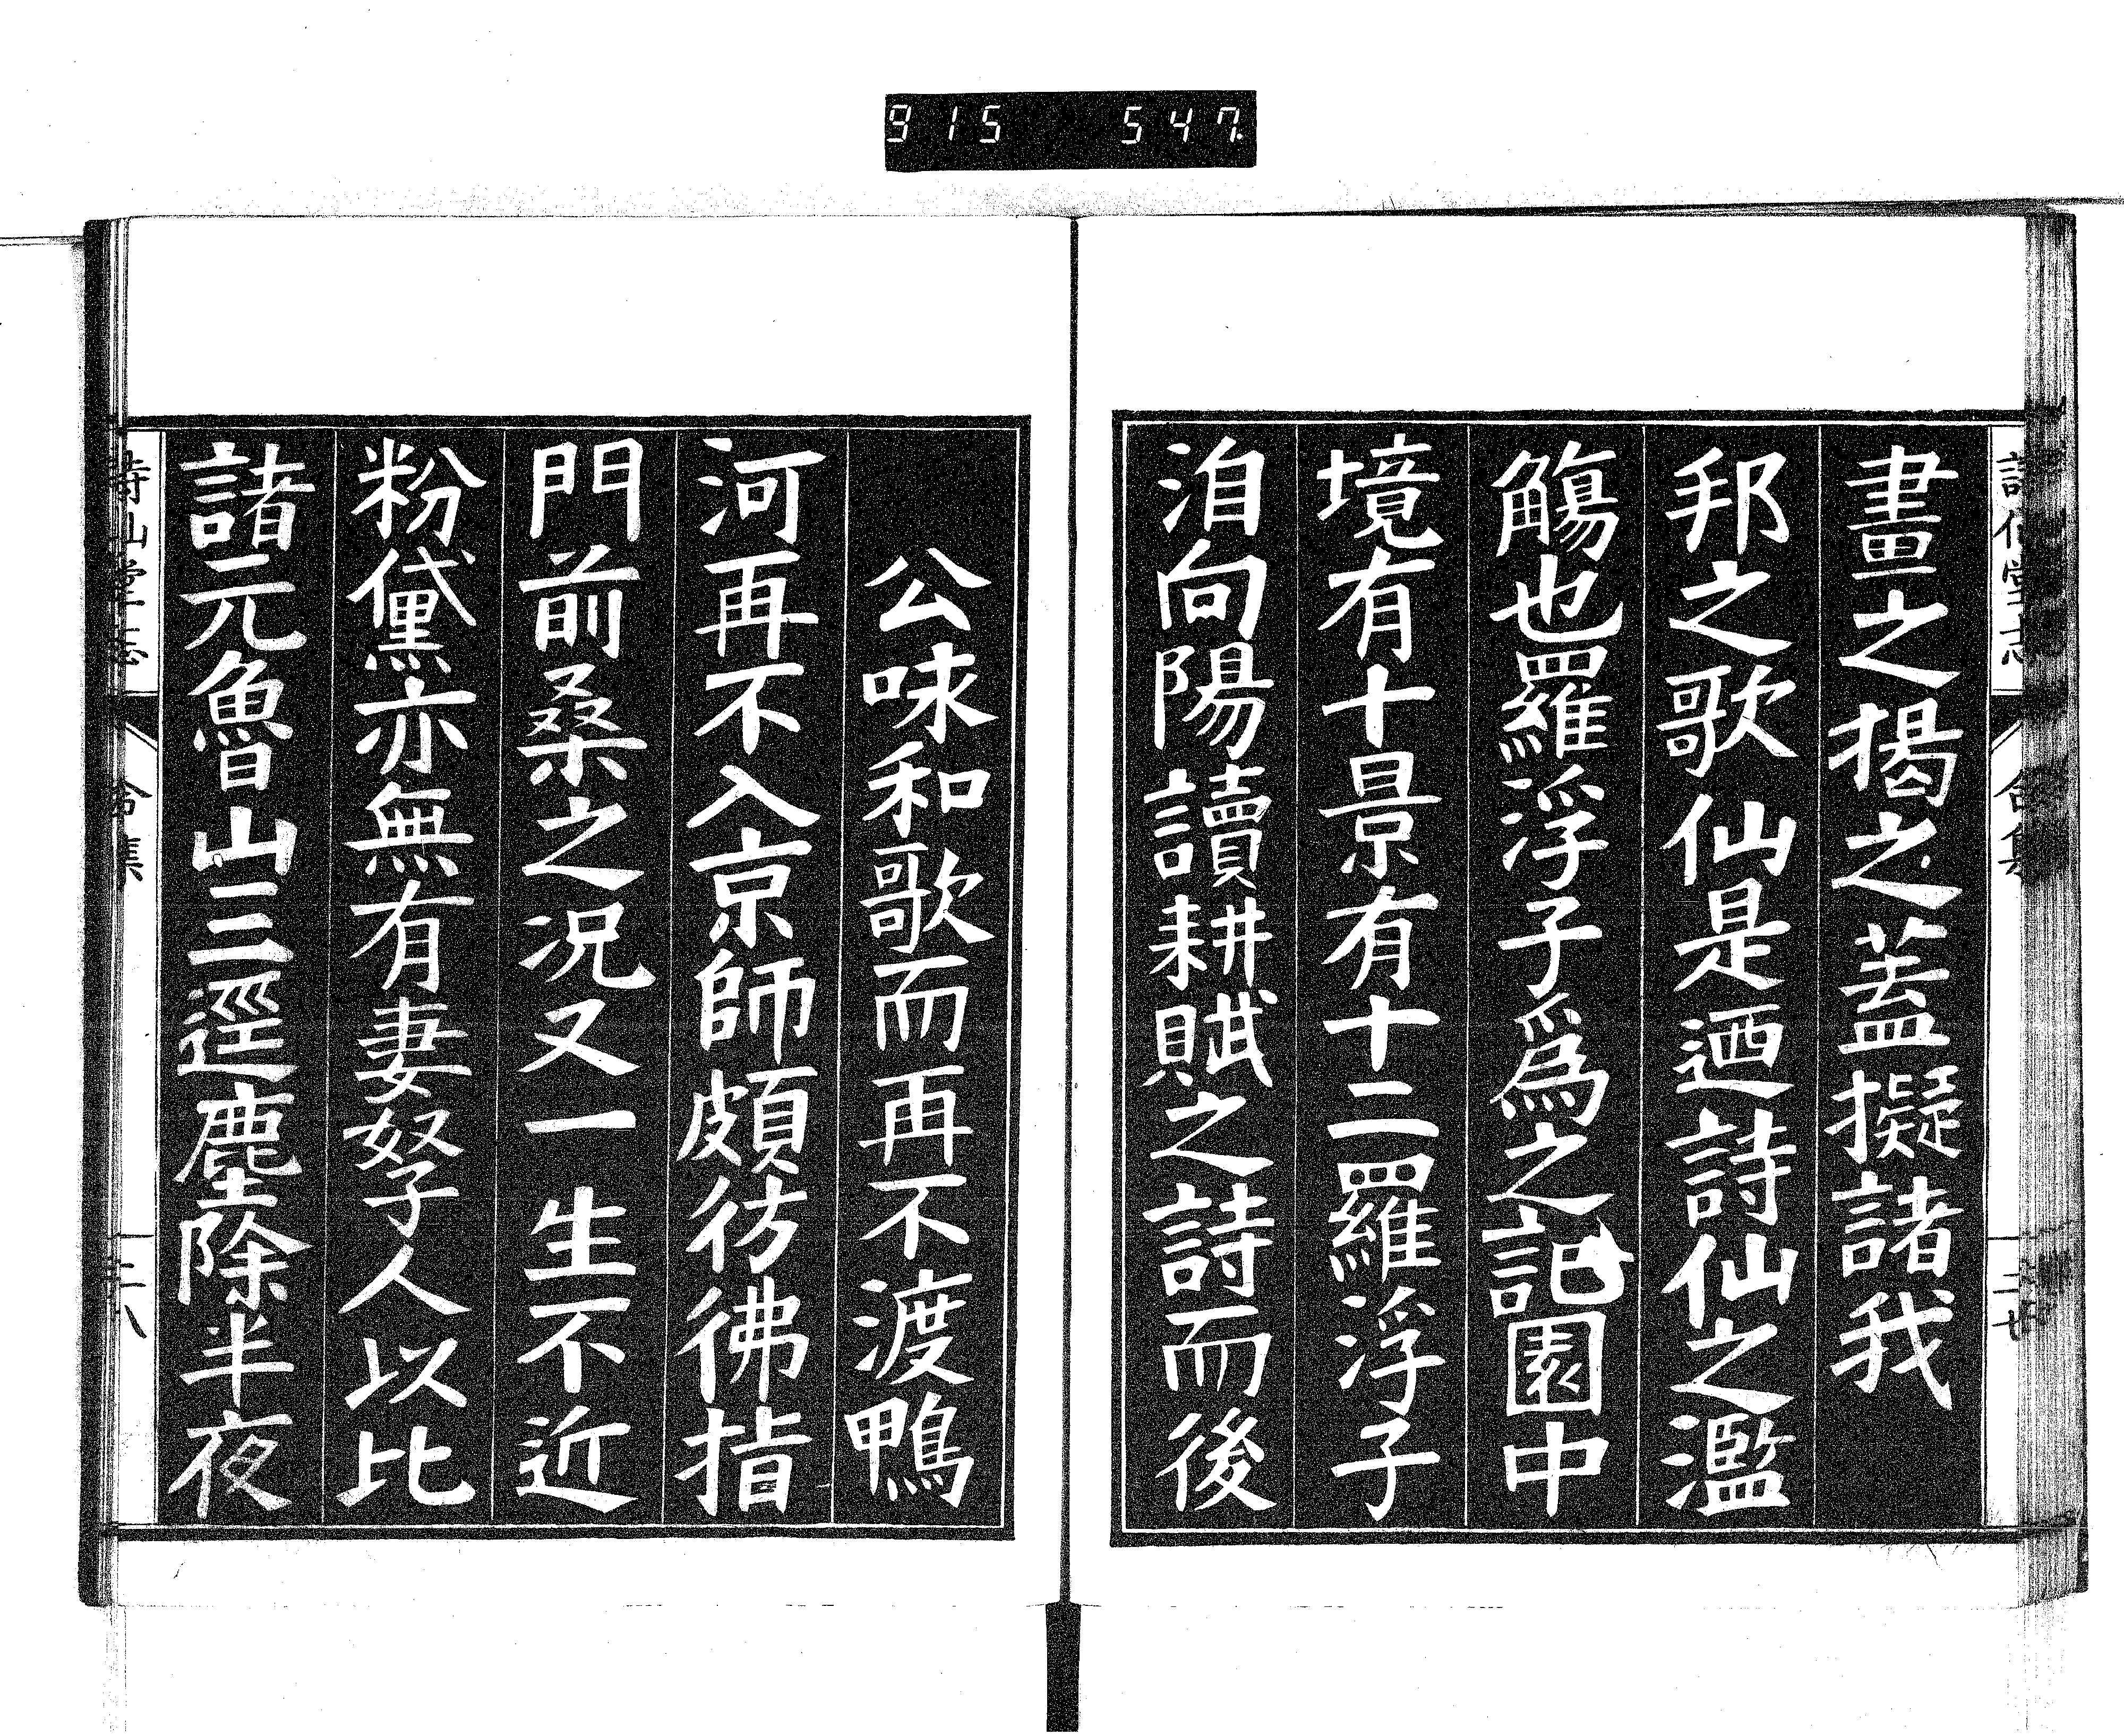 915 547
畫之揭之蓋擬諸我
邦之歌仙是迺詩仙之濫
觴也羅浮子爲之記園中
境有十景有十二羅浮子
洎向陽讀耕賦之詩而後
公味和歌而再不渡鴨
河再不入京師頗彷彿指
門前桑之况又一生不近
粉黛亦無有妻孥人以比
諸元魯山三逕塵除半夜
詩仙堂志
合集
二八